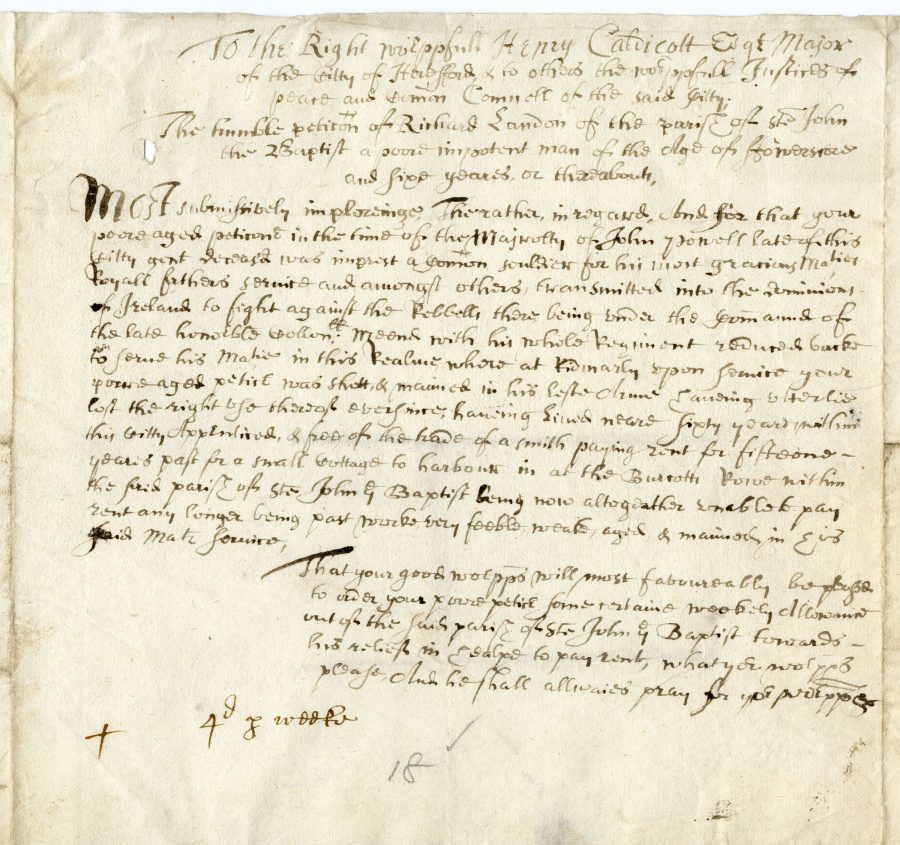 To the Right worppfull Henry Caldicott Esqr Maior
of the Citty of Hereford & to others the worppfull Justices of
peace and Comon Councell of the said Citty.
The humble peticon of Richard Landon of the parish of Ste John
the Baptist a poore impotent man of the Age of ffowerscore
and sixe yeares, or thereabouts,
Most submissively imploreinge, The rather, in regard, And for that your
poore aged peticonr in the time of the Majrolty of John Powell late of this
Citty gent deceased was imprest a Comon souldier for his most gracious Maties
Royall fathers service and amongst others, transmitted into the dominions
of Ireland to fight against the Rebbells there being under the Comaund of
the late honorble Collonll Meend with his whole Regiment reduced backe
to serve his Matie in this Realme, where at Ridmarly upon service your
poore aged peticr was shott, & maimed in his lefte Arme haveing utterlie
lost the right use thereof ever since, haveing lived neare sixty yeares within
this Citty Apprenticed, & free of the trade of a smith paying rent for fifteene
yeares past for a small Cottage to harbour in at the Burcott Rowe within
the said parish of Ste John the Baptist being now altogeather unable to pay
rent any longer being past worke very feeble weake, aged, & maimed in his
said Mats service,
That your good worpps will most favoureably be pleased
to order your poore peticr some certaine weekely Allowance
out of the said parish of Ste John the Baptist towards
his releife in healpe to pay rent, what yor worpps
please, And he shall allwaies pray for yor worpps
+ 4d p weeke
18